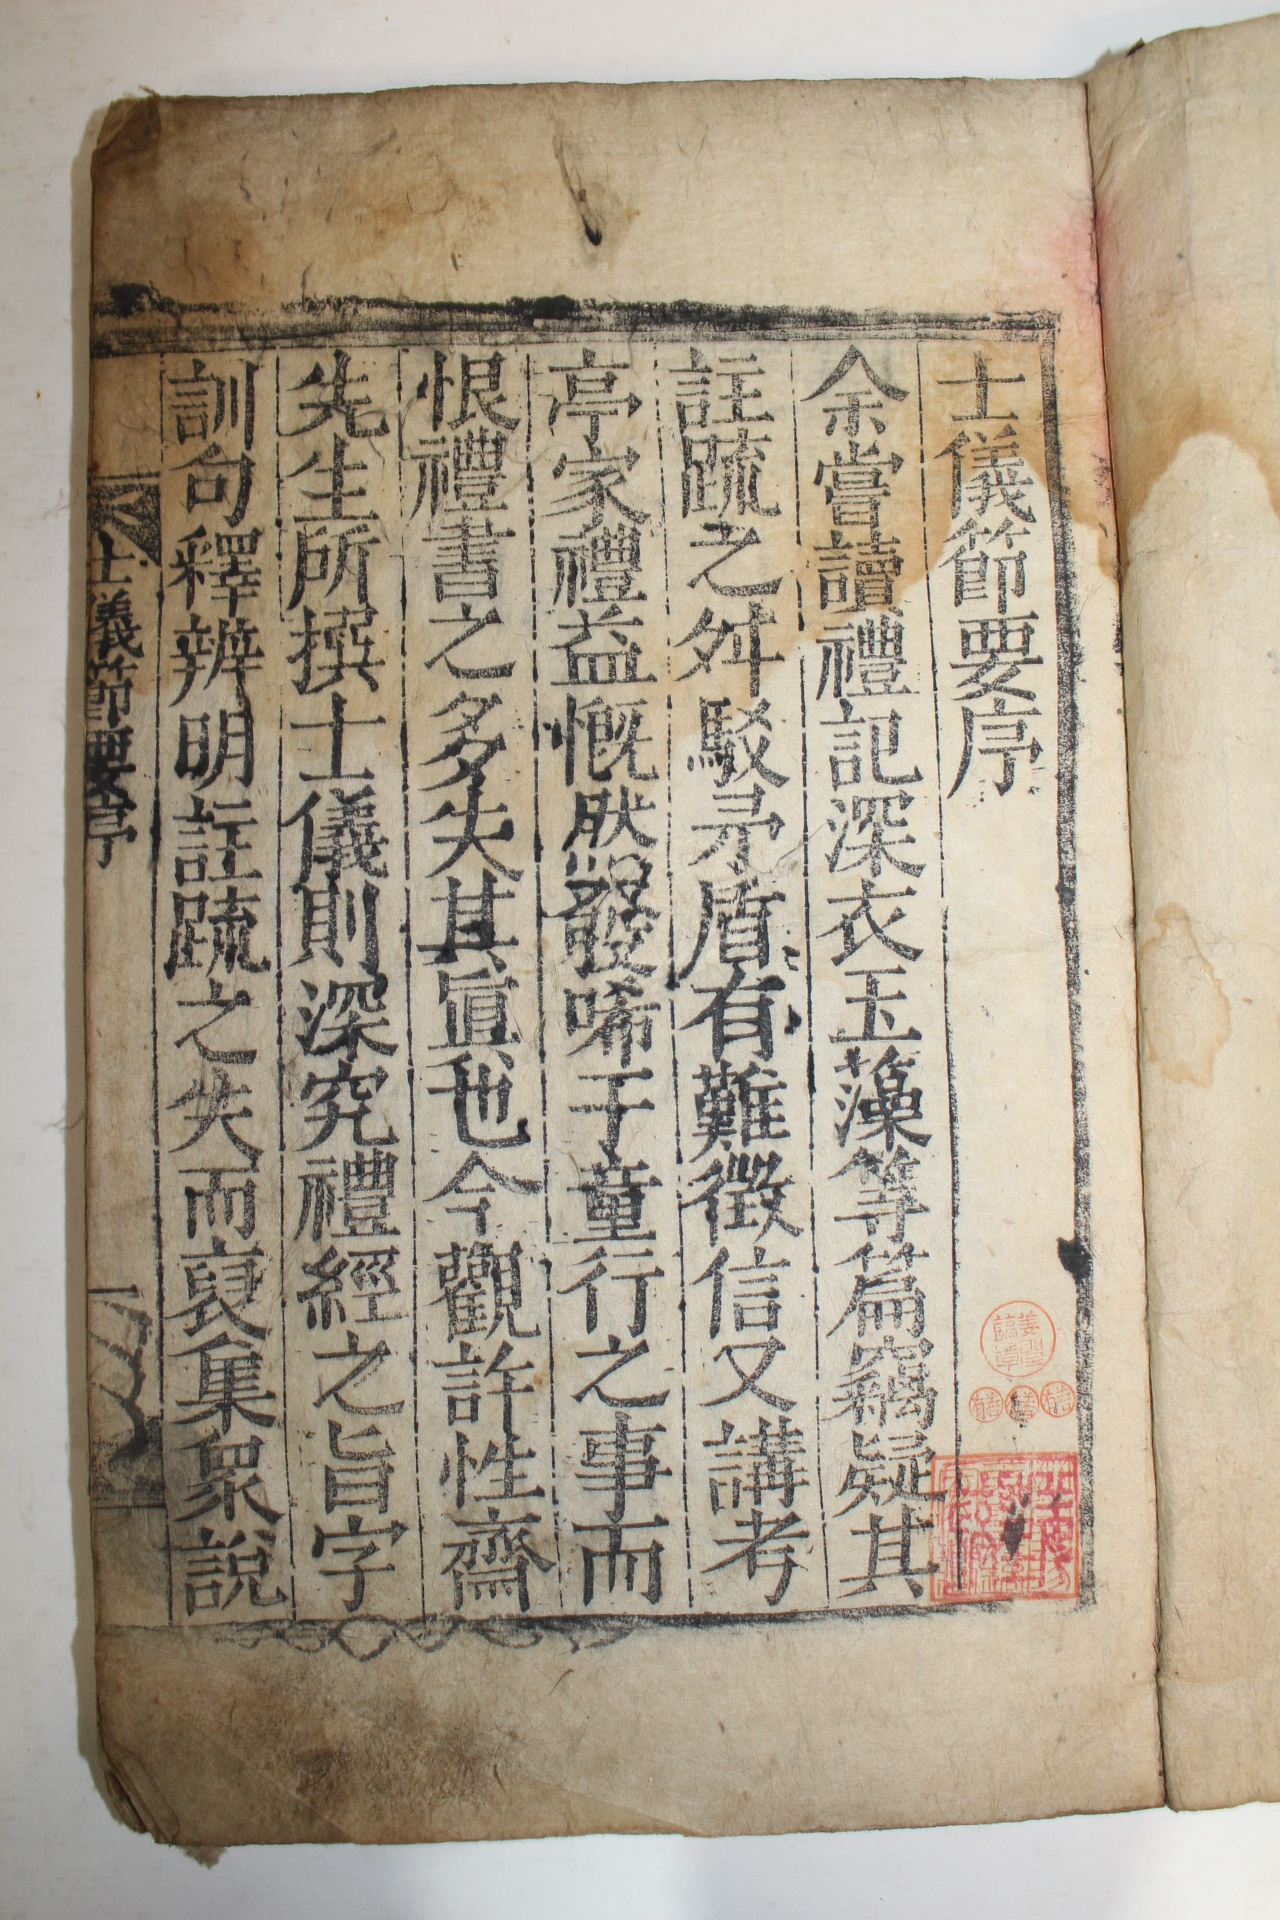 士儀節要序
余嘗讀禮記深衣玉藻等篇竊疑其
註疏之舛駁矛盾有難徵信又講考
亭家禮益慨然發唏于童行之事而
恨禮書之多失其眞也今觀許性齋
先生所撰士儀則深究禮經之旨字
訓句釋辨明註疏之失而裒集衆說
士儀節要序
一